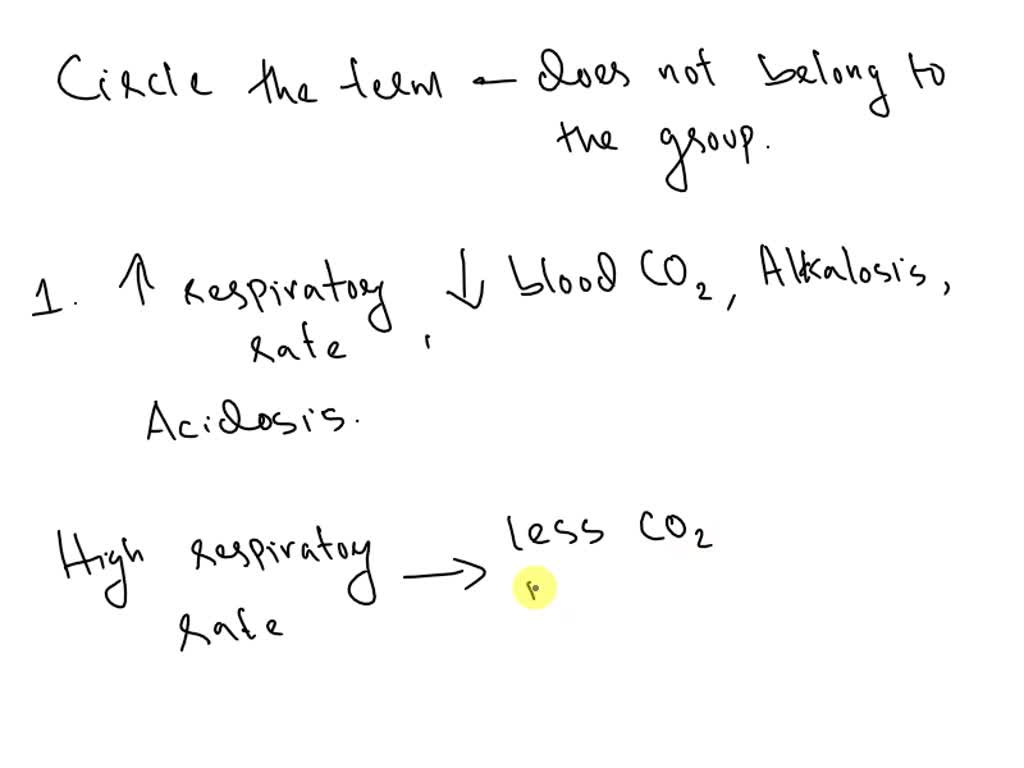 Circle the term – does not belong to
the group.
1. ↑ respiratory rate, ↓ blood CO₂, Alkalosis,
Acidosis.
High respiratory rate → less CO₂